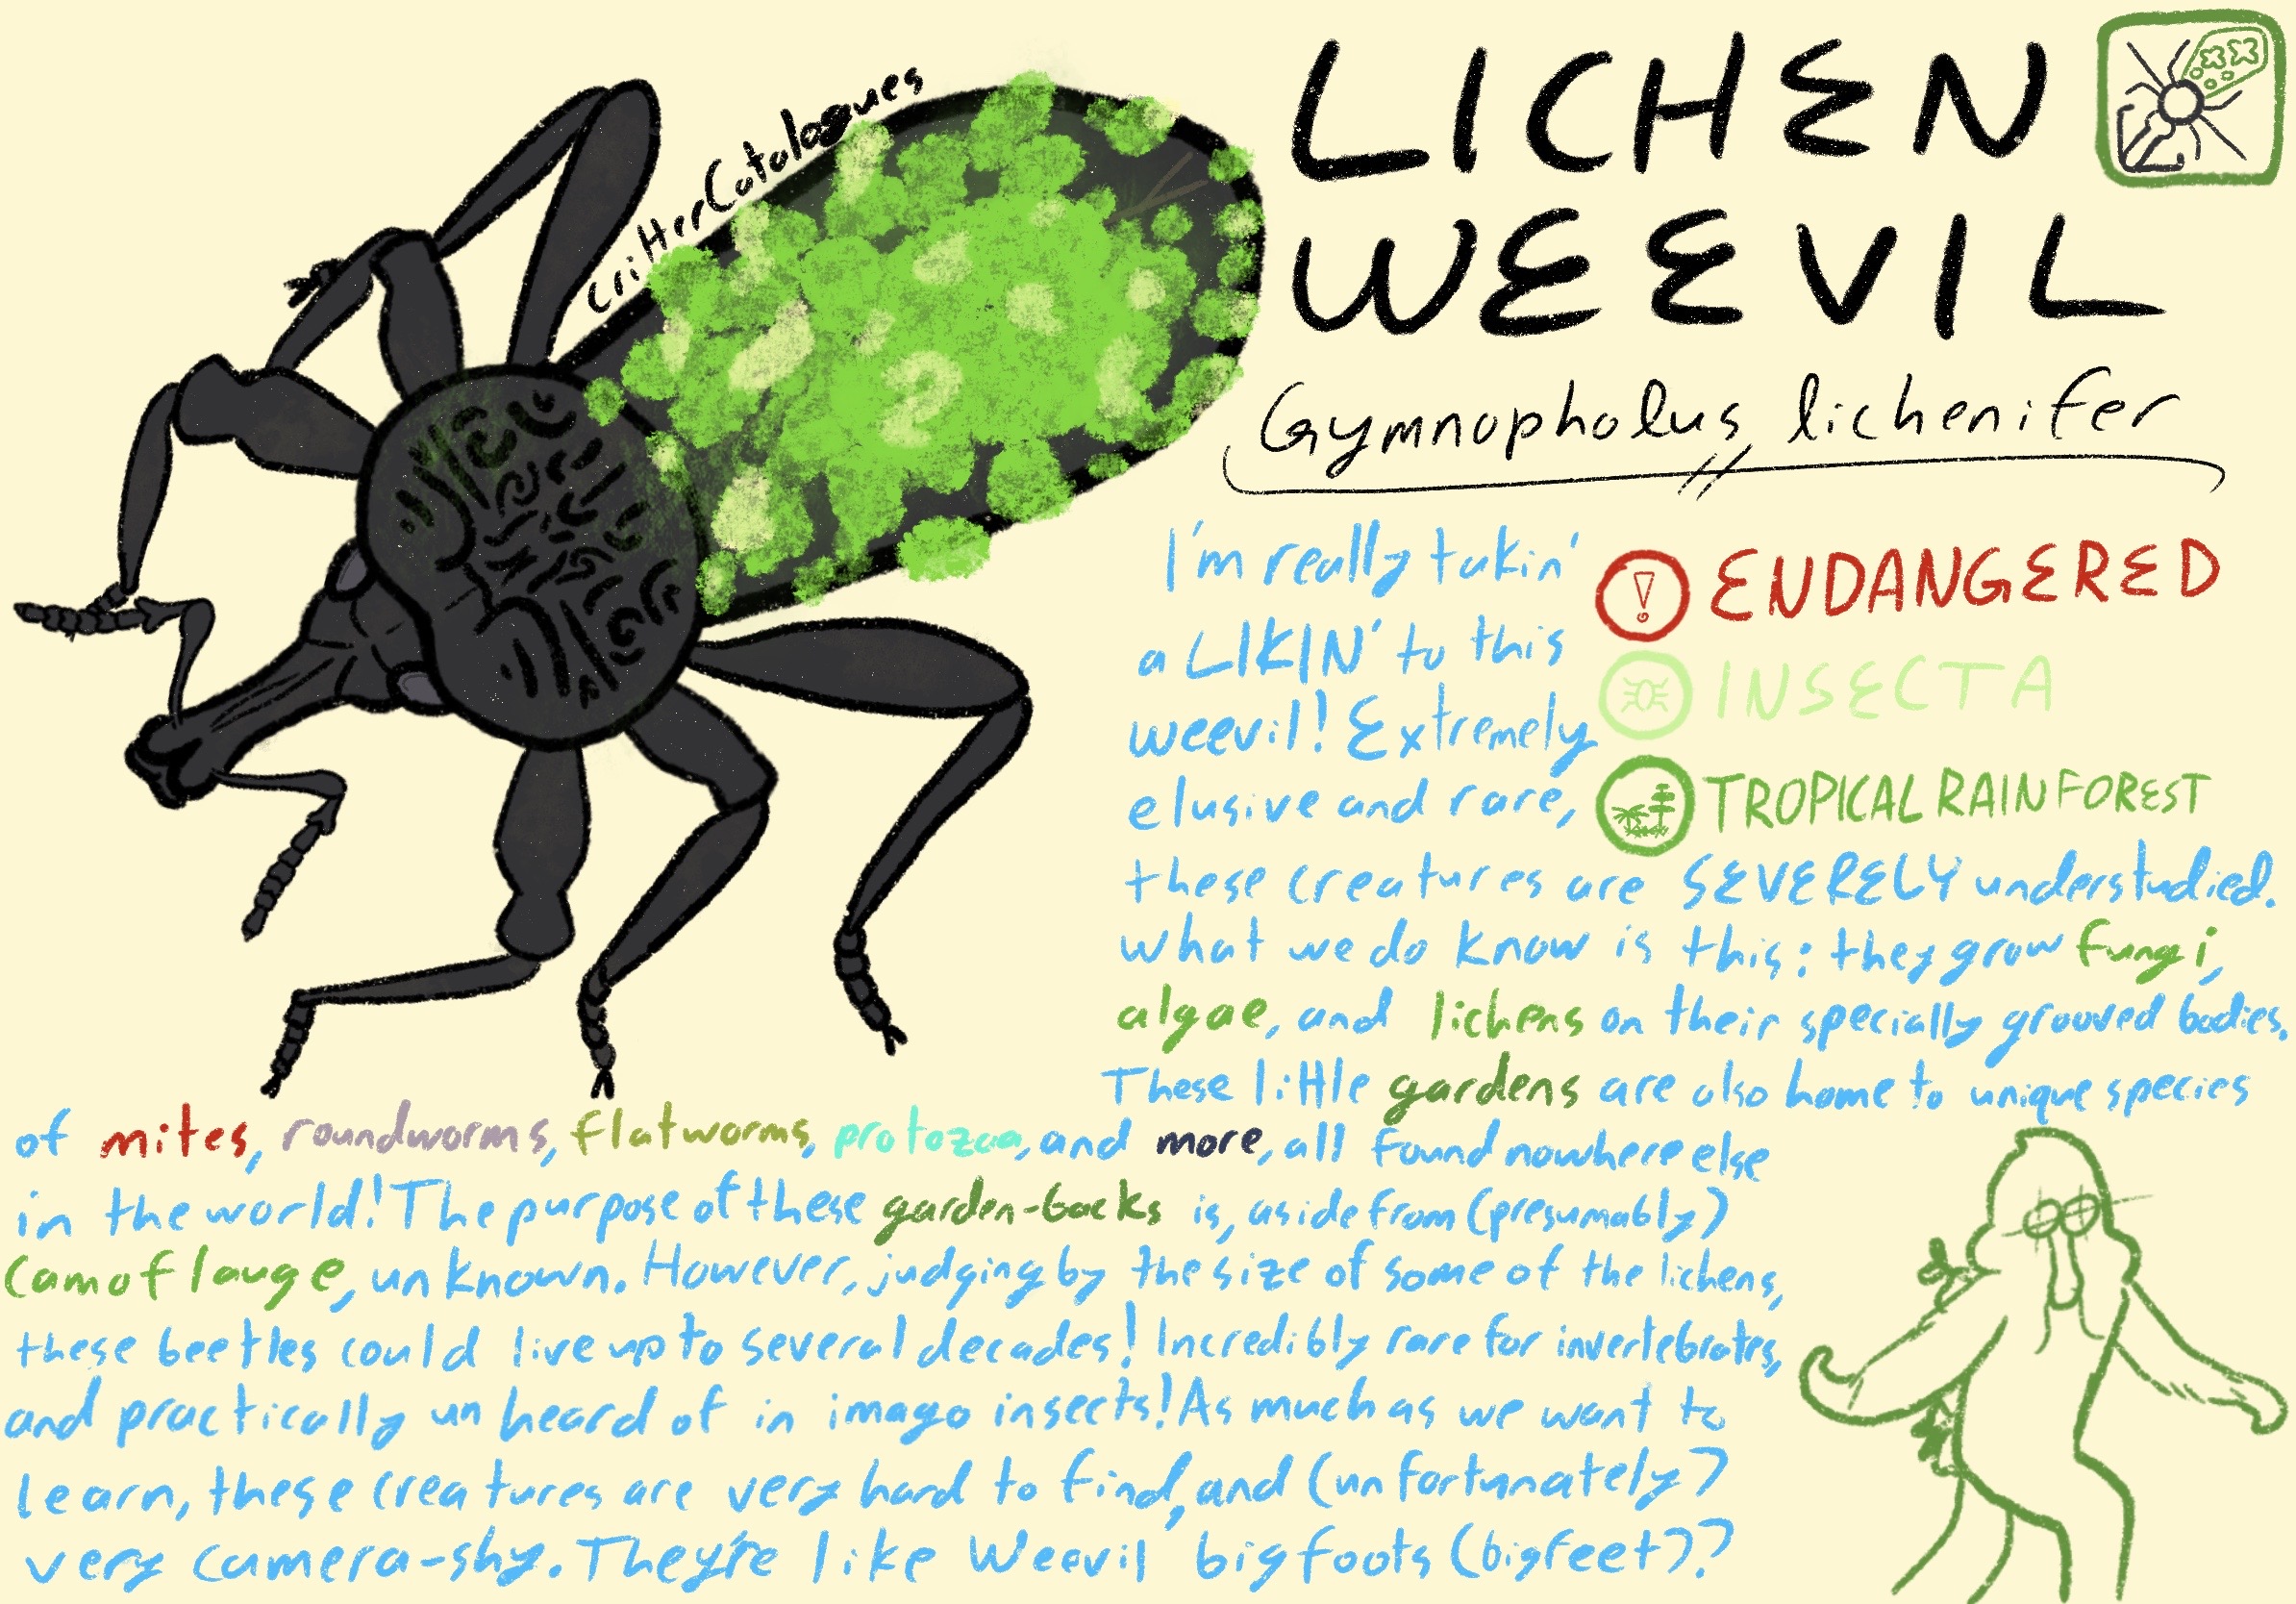 CritterCatalogues
LICHEN
WEEVIL
Gymnopholus lichenifer
I'm really takin'
a LIKIN' to this
weevil! Extremely
elusive and rare,
ENDANGERED
INSECTA
TROPICAL RAINFOREST
these creatures are SEVERELY understudied.
What we do know is this: they grow fungi,
algae, and lichens on their specially grooved bodies.
These little gardens are also home to unique species
of mites, roundworms, flatworms, protozoa, and more, all found nowhere else
in the world! The purpose of these garden-backs is, aside from (presumably)
camoflauge, unknown. However, judging by the size of some of the lichens,
these beetles could live up to several decades! Incredibly rare for invertebrates,
and practically unheard of in imago insects! As much as we want to
learn, these creatures are very hard to find, and (unfortunately)
very camera-shy. They're like Weevil bigfoots (bigfeet)?